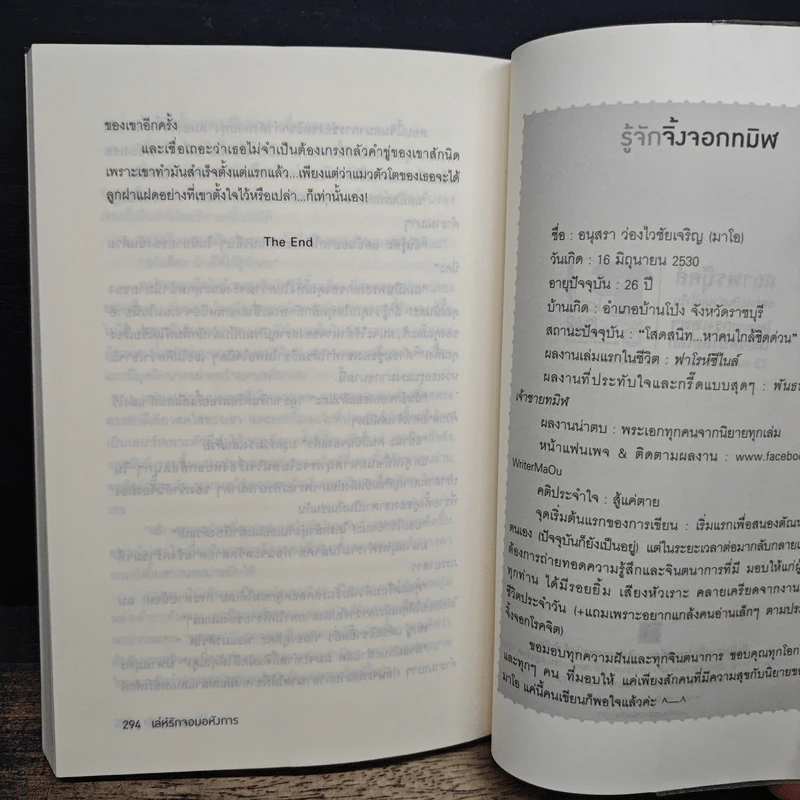 ของเขาอีกครั้ง
และเชื่อเถอะว่าเธอไม่จำเป็นต้องเกรงกลัวคำขู่ของเขาสักนิด
เพราะเขาทำมันสำเร็จตั้งแต่แรกแล้ว...เพียงแต่ว่าแมวตัวโตของเธอจะได้
ลูกฝาแฝดอย่างที่เขาตั้งใจไว้หรือเปล่า...ก็เท่านั้นเอง!
The End
294 เล่ห์รักจอมอหังการ
รู้จักจิ้งจอกทมิฬ
ชื่อ : อนุสรา ว่องไวชัยเจริญ (มาโอ)
วันเกิด : 16 มิถุนายน 2530
อายุปัจจุบัน : 26 ปี
บ้านเกิด : อำเภอบ้านโป่ง จังหวัดราชบุรี
สถานะปัจจุบัน : "โสดสนิท...หาคนใกล้ชิดด่วน"
ผลงานเล่มแรกในชีวิต : ฟาโรห์ซีไนล์
ผลงานที่ประทับใจและกรี๊ดแบบสุดๆ :
เจ้าชายทมิฬ
ผลงานน่าตบ : พระเอกทุกคนจากนิยายทุกเล่ม
หน้าแฟนเพจ & ติดตามผลงาน : www.facebo
WriterMaOu
คติประจำใจ : สู้แค่ตาย
จุดเริ่มต้นแรกของการเขียน : เริ่มแรกเพื่อสนองตัณห
ตนเอง (ปัจจุบันก็ยังเป็นอยู่) แต่ในระยะเวลาต่อมากลับกลาย
ต้องการถ่ายทอดความรู้สึกและจินตนาการที่มี มอบให้แก่
ทุกท่าน ได้มีรอยยิ้ม เสียงหัวเราะ คลายเครียดจากงาน
ชีวิตประจำวัน (+แถมเพราะอยากแกล้งคนอ่านเล็กๆ ตามประ
จิ้งจอกโรคจิต)
ขอมอบทุกความฝันและทุกจินตนาการ ขอบคุณทุกโอก
และทุกๆ คน ที่มอบให้ แค่เพียงสักคนที่มีความสุขกับนิยาย
มาโอ แค่นี้คนเขียนก็พอใจแล้วค่ะ ^—^